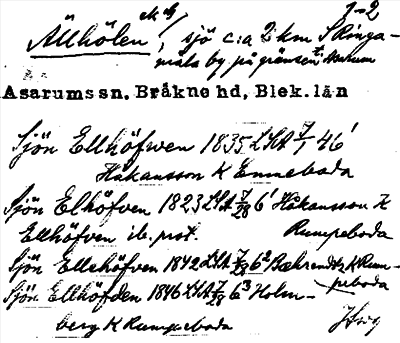 1-2
Ällhölen Mbl, sjö c:a 2 km S Ringa-
måla by på gränsen t. Asarum
Asarums sn, Bräkne hd, Blek. län
Sjön Ellhöfwen 1835 LSA 7/1 46¹
Håkansson K Emneboda
Sjön Elhöfven 1823 LSA 7/28 6¹ Håkansson K
Ellhöfven ib. prot. Rumpeboda
Sjön Ellehöfven 1842 LSA 7/28 6² Bæhrendtz K Rum-
peboda
Sjön Ellhöfden 1846 LSA 7/28 6³ Holm-
berg K Rumpeboda